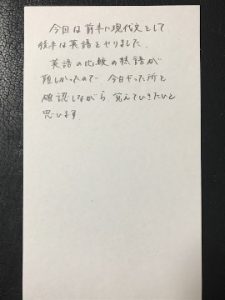 今回は前半に現代文をして
後半は英語をやりました。
英語の比較の熟語が
難しかったので今日やった所を
確認しながら覚えていきたいと
思います